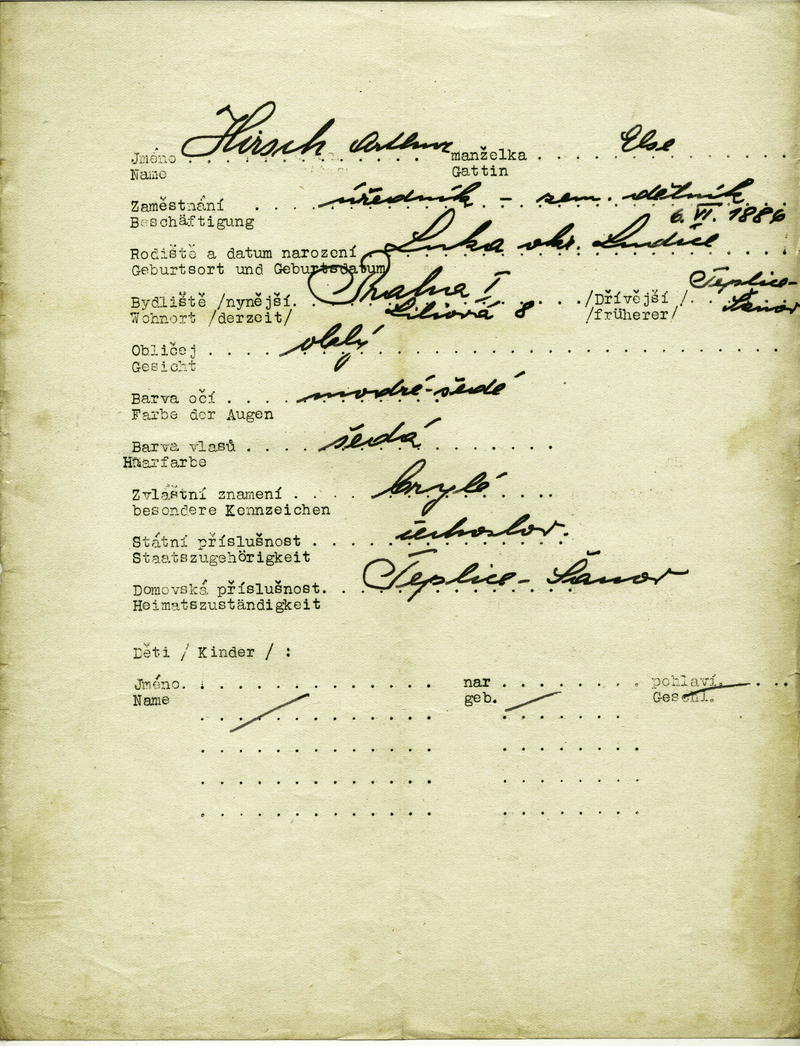 Jméno . Hirsch Arthur manželka . . . Else . . . . . .
Name Gattin
Zaměstnání . . . . úředník - zem. dělník
Beschäftigung 6. VI. 1886
Rodiště a datum narození . Luka okr. Ludice . . . .
Geburtsort und Geburtsdatum
Bydliště /nynější. Praha I . . . /Dřívější /. . Teplice-
Wohnort /derzeit/ Liliová 8 /früherer/ Šanov
Obličej . . . . oblý . . . . . . . . . .
Gesicht
Barva očí . . . . modré-šedé
Farbe der Augen
Barva vlasů . . . . šedá . . . . . .
Haarfarbe
Zvláštní znamení . . . . brylé . . .
besondere Kennzeichen
Státní příslušnost . . . . čechoslov.
Staatszugehörigkeit
Domovská příslušnost. . . Teplice - Šanov
Heimatszuständigkeit
Děti / Kinder / :
Jméno. . . . . . . . . . . . . nar . . . . . . . . pohlaví. . . .
Name geb. Geschl.